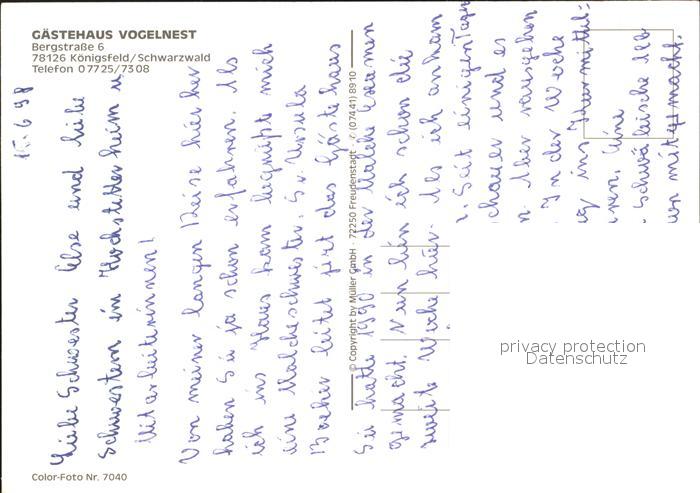 GÄSTEHAUS VOGELNEST
Bergstraße 6
78126 Königsfeld/Schwarzwald
Telefon 07725/7308
15.6.98
Liebe Schwester Else und liebe
Schwestern im Hochstetterheim u.
Mitarbeiterinnen!
Von meiner langen Reise hierher
haben Sie ja schon erfahren. Als
ich ins Haus kam begrüßte mich
eine Malcheschwester. Sr. Ursula
Bocher leitet jetzt das Gästehaus
Sie hatte 1990 in der Malche Examen
gemacht. Nun bin ich schon die
zweite Woche hier. Als ich ankam
Seit einigen Tagen
und es
aber
In der Woche
ins
nen. Eine
Schwäbische
mitgemacht.
© Copyright by Müller GmbH · 72250 Freudenstadt · ✆ (07441) 8910
privacy protection
Datenschutz
Color-Foto Nr. 7040